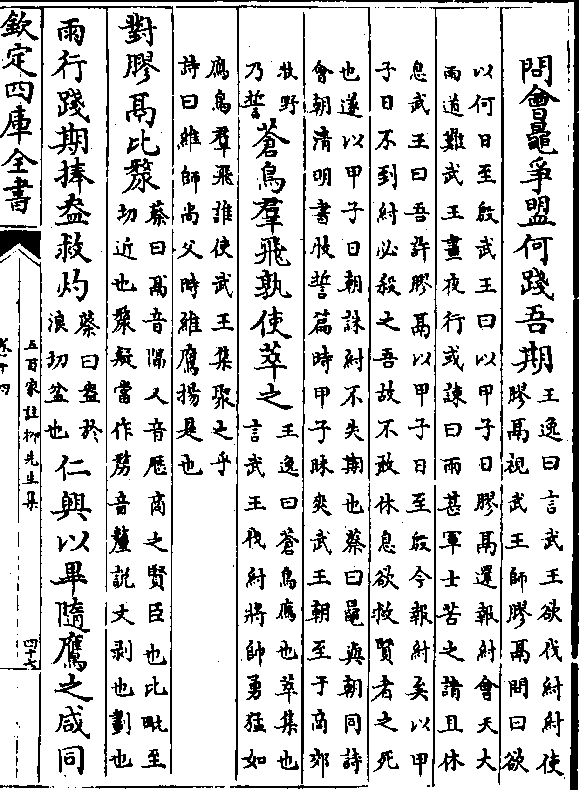 問會鼂爭盟何踐吾期
王逸曰言武王欲伐紂紂使
膠鬲視武王師膠鬲問曰欲
以何日至殷武王曰以甲子日膠鬲還報紂會天大
雨道難武王晝夜行或諫曰雨甚軍士苦之請且休
息武王曰吾許膠鬲以甲子日至殷今報紂矣以甲
子日不到紂必殺之吾故不敢休息欲救賢者之死
也遂以甲子日朝誅紂不失期也蔡曰鼂與朝同詩
會朝清明書牧誓篇時甲子昧爽武王朝至于商郊
牧野
乃誓
蒼鳥羣飛孰使萃之
王逸曰蒼鳥鷹也萃集也
言武王伐紂將師勇猛如
鷹鳥羣飛誰使武王集聚之乎
詩曰維師尚父時維鷹揚是也
對膠鬲比漦
蔡曰鬲音隔又音歷商之賢臣也比毗至
切近也漦疑當作剺音釐說文剥也劃也
雨行踐期捧盎救灼
蔡曰盎於
浪切盆也
仁興以畢隨鷹之咸同
欽定四庫全書
五百家註柳先生集
卷十四
四十七